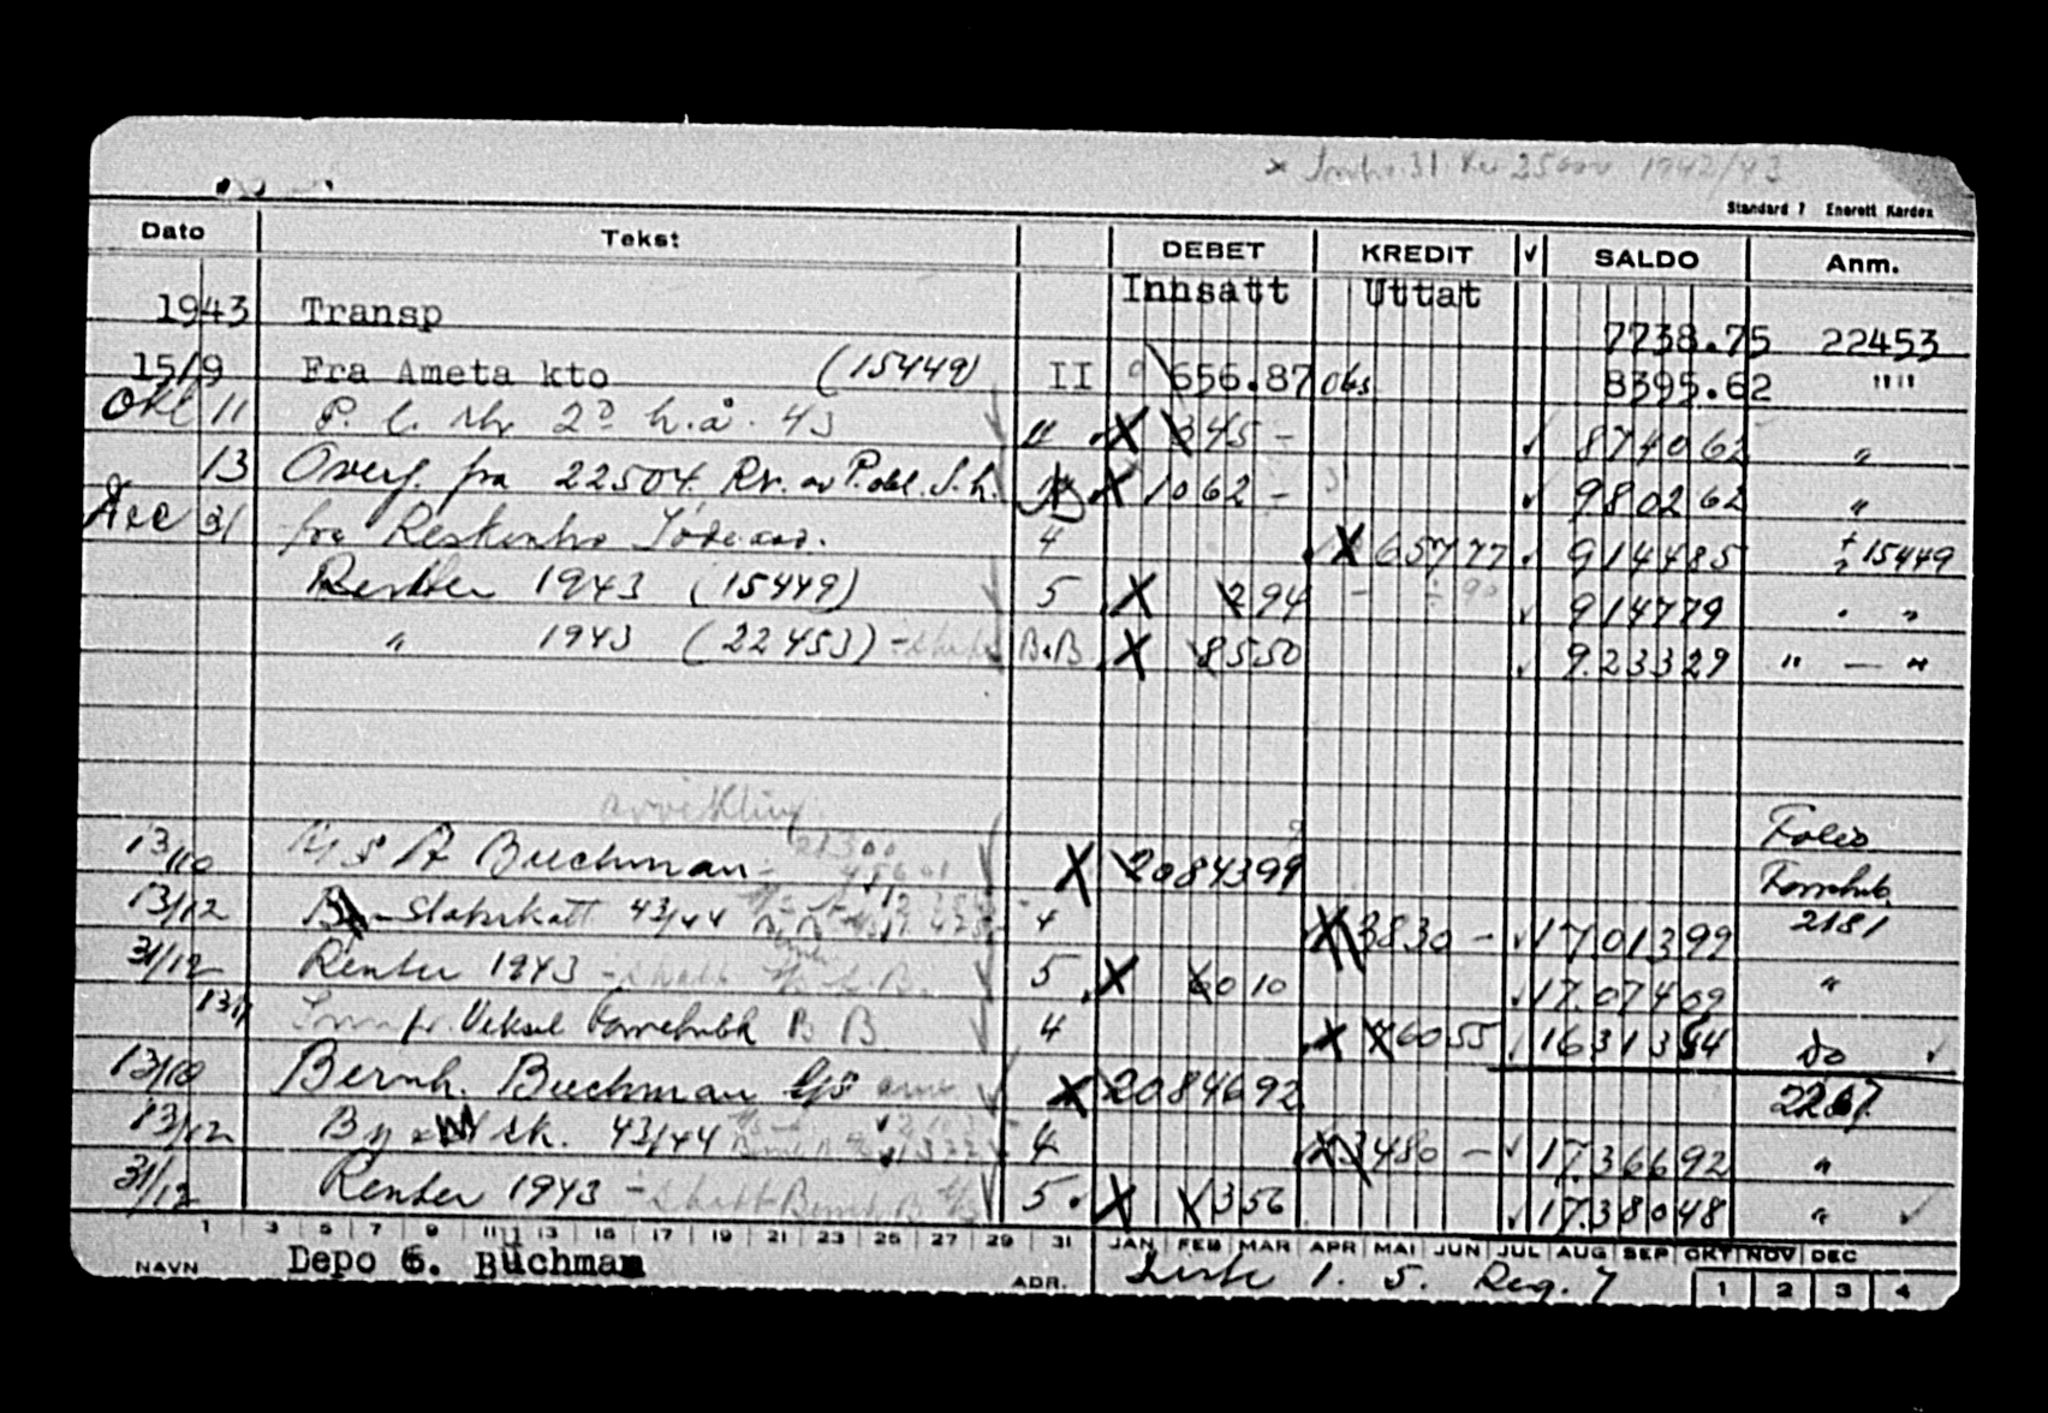 1942/43
Standard 7 Enerett Kardex
Dato Tekst DEBET KREDIT √ SALDO Anm.
Innsatt Uttat
1943 Transp 7738.75 22453
15/9 Fra Ameta kto (15449) II 656.87 Obs. 8395.62 " "
Okt 11 P. 2º h.å. 43 " X 345 - √ 8740 62 "
13 Overf. fra 22504. Rr. av P.obl. X 1062 - √ 9802 62 "
Dec 31 fra Reskontro 4 X 657 77 √ 9144 85 15449
Renter 1943 (15449) 5 X 2 94 √ 9147 79 " "
" 1943 (22453) B.B X 85 50 √ 9.233 29 " — "
avvikling
Folio
13/10 A Buchman X 20843 99 Forretnb.
13/12 Statsskatt 43/44 4 X 3830 - √ 17013 99 2181
31/12 Renter 1943 5 X 60 10 √ 17.074 09 "
13/1 Veksel Forretnbk B B 4 X 760 55 √ 16313 54 do √
13/10 Bernh. Buchman X 20846 92 2267
13/12 By sk. 43/44 4 X 3480 - √ 17.366 92 "
31/12 Renter 1943 5 X 13 56 √ 17.380 48 " √
1 3 5 7 9 11 13 15 17 19 21 23 25 27 29 31 JAN FEB MAR APR MAI JUN JUL AUG SEP OKT NOV DEC
NAVN Depo G. Buchman ADR. Liste 1. 5. Reg. 7 1 2 3 4